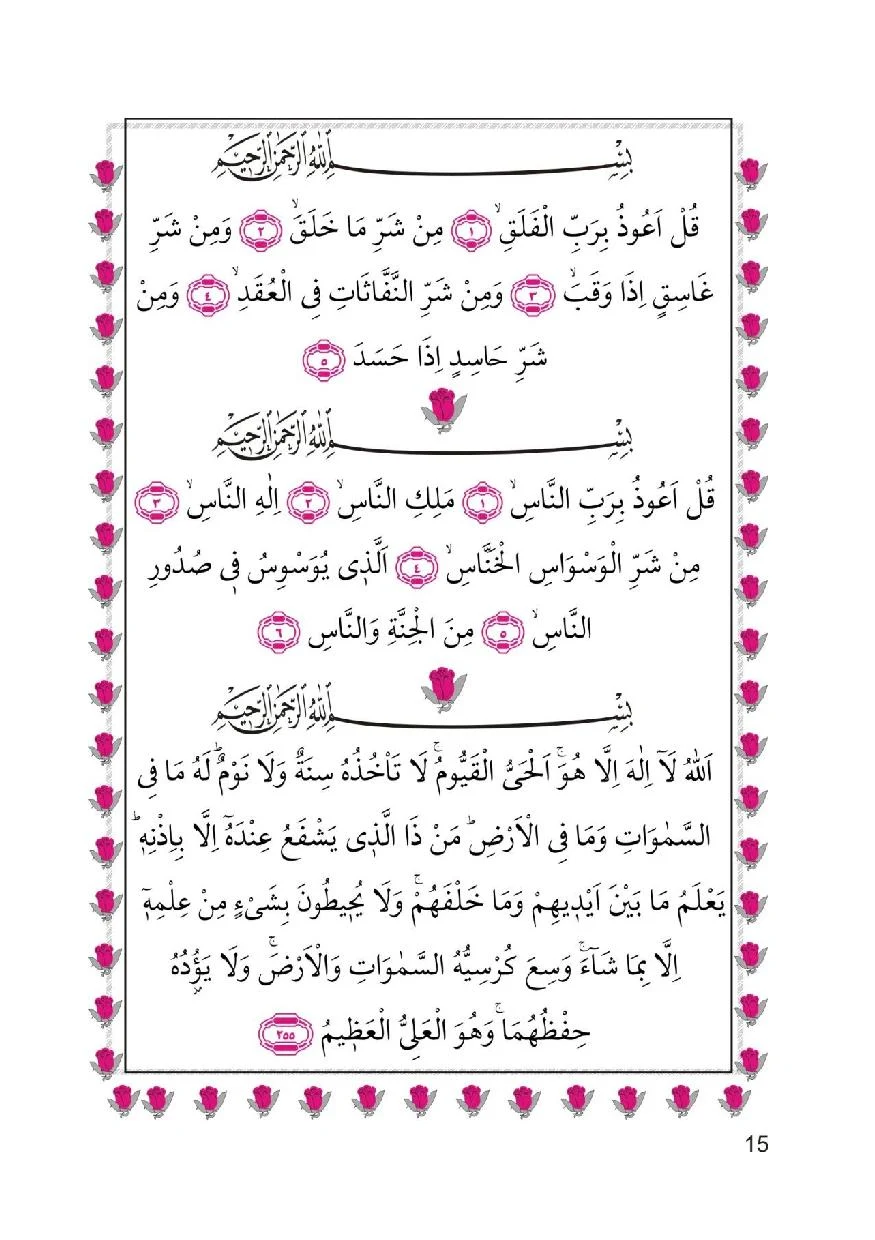 بِسْمِ اللهِ الرَّحْمٰنِ الرَّحِيمِ
قُلْ اَعُوذُ بِرَبِّ الْفَلَقِۙ ﴿١﴾ مِنْ شَرِّ مَا خَلَقَۙ ﴿٢﴾ وَمِنْ شَرِّ
غَاسِقٍ اِذَا وَقَبَۙ ﴿٣﴾ وَمِنْ شَرِّ النَّفَّاثَاتِ فِى الْعُقَدِۙ ﴿٤﴾ وَمِنْ
شَرِّ حَاسِدٍ اِذَا حَسَدَ ﴿٥﴾
بِسْمِ اللهِ الرَّحْمٰنِ الرَّحِيمِ
قُلْ اَعُوذُ بِرَبِّ النَّاسِۙ ﴿١﴾ مَلِكِ النَّاسِۙ ﴿٢﴾ اِلٰهِ النَّاسِۙ ﴿٣﴾
مِنْ شَرِّ الْوَسْوَاسِ الْخَنَّاسِۙ ﴿٤﴾ اَلَّذٖى يُوَسْوِسُ فٖى صُدُورِ
النَّاسِۙ ﴿٥﴾ مِنَ الْجِنَّةِ وَالنَّاسِ ﴿٦﴾
بِسْمِ اللهِ الرَّحْمٰنِ الرَّحِيمِ
اَللهُ لَآ اِلٰهَ اِلَّا هُوَۚ اَلْحَىُّ الْقَيُّومُۚ لَا تَاْخُذُهُ سِنَةٌ وَلَا نَوْمٌؕ لَهُ مَا فِى
السَّمٰوَاتِ وَمَا فِى الْاَرْضِؕ مَنْ ذَا الَّذٖى يَشْفَعُ عِنْدَهُٓ اِلَّا بِاِذْنِهٖؕ
يَعْلَمُ مَا بَيْنَ اَيْدٖيهِمْ وَمَا خَلْفَهُمْۚ وَلَا يُحٖيطُونَ بِشَىْءٍ مِنْ عِلْمِهٖٓ
اِلَّا بِمَا شَآءَۚ وَسِعَ كُرْسِيُّهُ السَّمٰوَاتِ وَالْاَرْضَۚ وَلَا يَؤُدُهُ
حِفْظُهُمَاۚ وَهُوَ الْعَلِىُّ الْعَظٖيمُ ﴿٢٥٥﴾
15